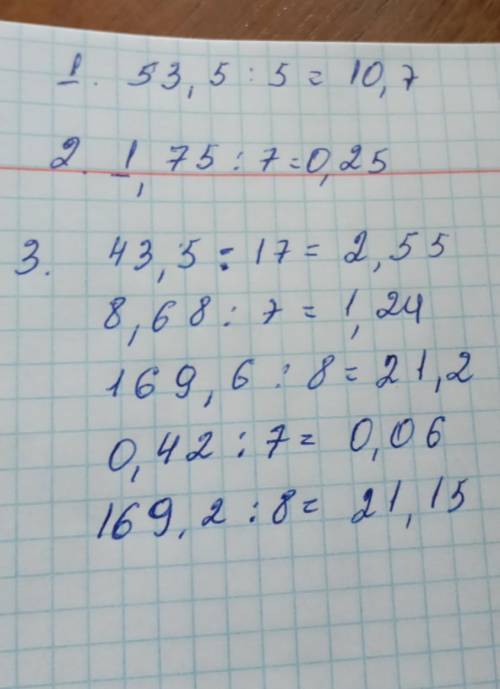 1. 53,5 : 5 = 10,7
2. 1,75 : 7 = 0,25
3. 43,5 : 17 = 2,55
8,68 : 7 = 1,24
169,6 : 8 = 21,2
0,42 : 7 = 0,06
169,2 : 8 = 21,15